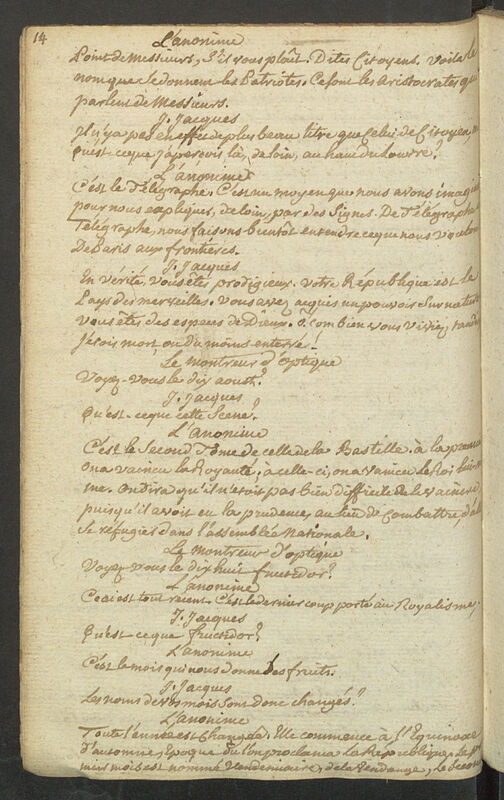 14
L'anonime
Point de messieurs, s'il vous plaît. Dites Citoyens. Voila le
nom que se donnent les Patriotes. Ce sont les Aristocrates qui
parlent de Messieurs.
J. Jacques
Il n'y a pas en effet de plus beau titre que celui de Citoyen,
Qu'est ce que j'aperçois là, de loin, au haut du Louvre?
L'anonime
C'est le Télégraphe. C'est un moyen que nous avons imaginé
pour nous expliquer, de loin, par des Signes. De Télégraphe
Télégraphe, nous faisons bientôt entendre ce que nous voulons
De Paris aux frontieres.
J. Jacques
En vérité, vous êtes prodigieux. Votre République est le
Pays des merveilles. Vous avez acquis un pouvoir surnaturel
vous êtes des especes de Dieux. ô. combien vous viviez, tandis
Je sois mort ou du moins enterré!
Le montreur d'optique
Voyez-vous le dix aoust?
J. Jacques
Qu'est-ce que cette Scene?
L'Anonime
C'est le Second Tome de celle de la Bastille. à la premiere
on a vaincu la Royauté, à celle-ci, on a vaincu le Roi lui-mê
me. On dira qu'il n'étoit pas bien difficile de le vaincre
puisqu'il avoit eu la prudence, au lieu de combattre, d'aller
Se réfugier dans l'assemblée Nationale.
Le montreur d'optique
Voyez-vous le dix huit fructidor?
L'anonime
Ceci est tout recent. C'est le dernier coup porté au Royalisme.
J. Jacques
Qu'est ce que fructidor?
L'anonime
C'est le mois qui nous donne des fruits.
J. Jacques
Les noms de vos mois sont donc changés?
L'anonime
Toute l'année est changée. Elle commence à l'Equinoxe
d'automne, Epoque où l'on proclama la République. Le pre
mier mois est nommé Vendemiaire, de la Vendange, le Second